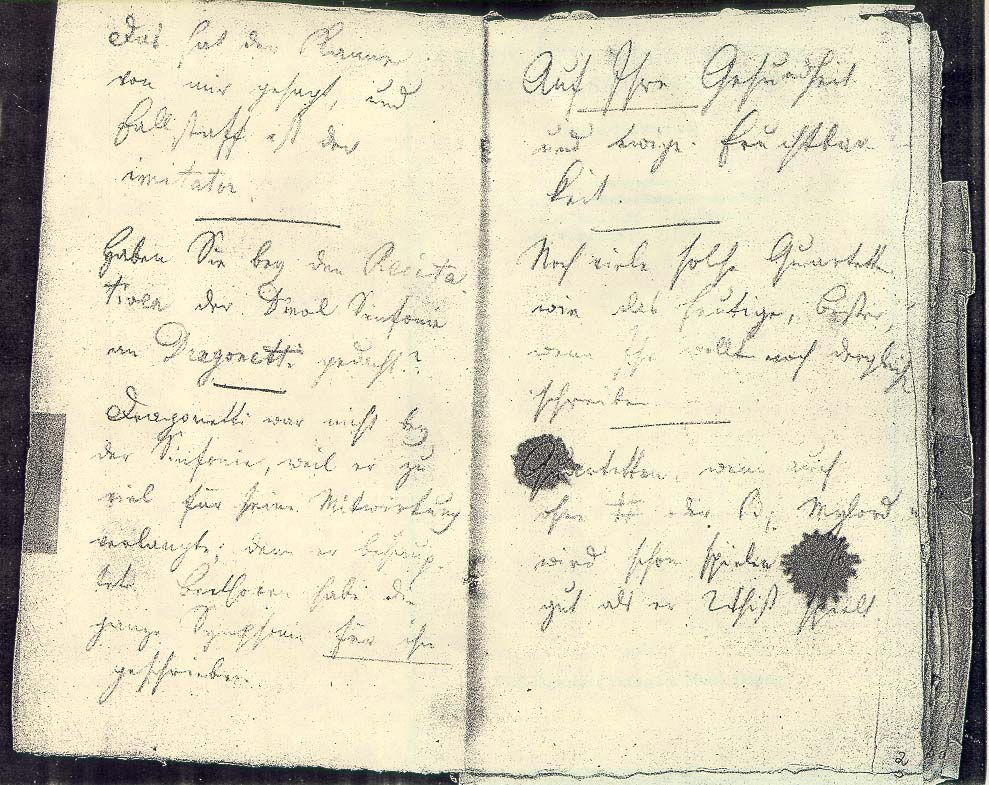 Das hat der Kanne
von mir gesagt, und
Fallstaff ist der
imitator
Haben Sie bey den Recita
tiven der Dmol Sinfonie
an Dragonetti gedacht?
Dragonetti war nicht bey
der Sinfonie, weil er zu
viel für seine Mitwirkung
verlangte; denn er behaup
tete Beethoven habe die
ganze Symphonie für ihn
geschrieben.
Auf Ihre Gesundheit
und ewige Fruchtbar
keit.
Noch viele solche Quartette
wie das heutige, Bester,
wenn Sie wollen noch dergleichen
schreiben
Quartetten, wenn auch
ohne ## oder B, Mylord
wird schon spielen
gut als er Whist spielt
2